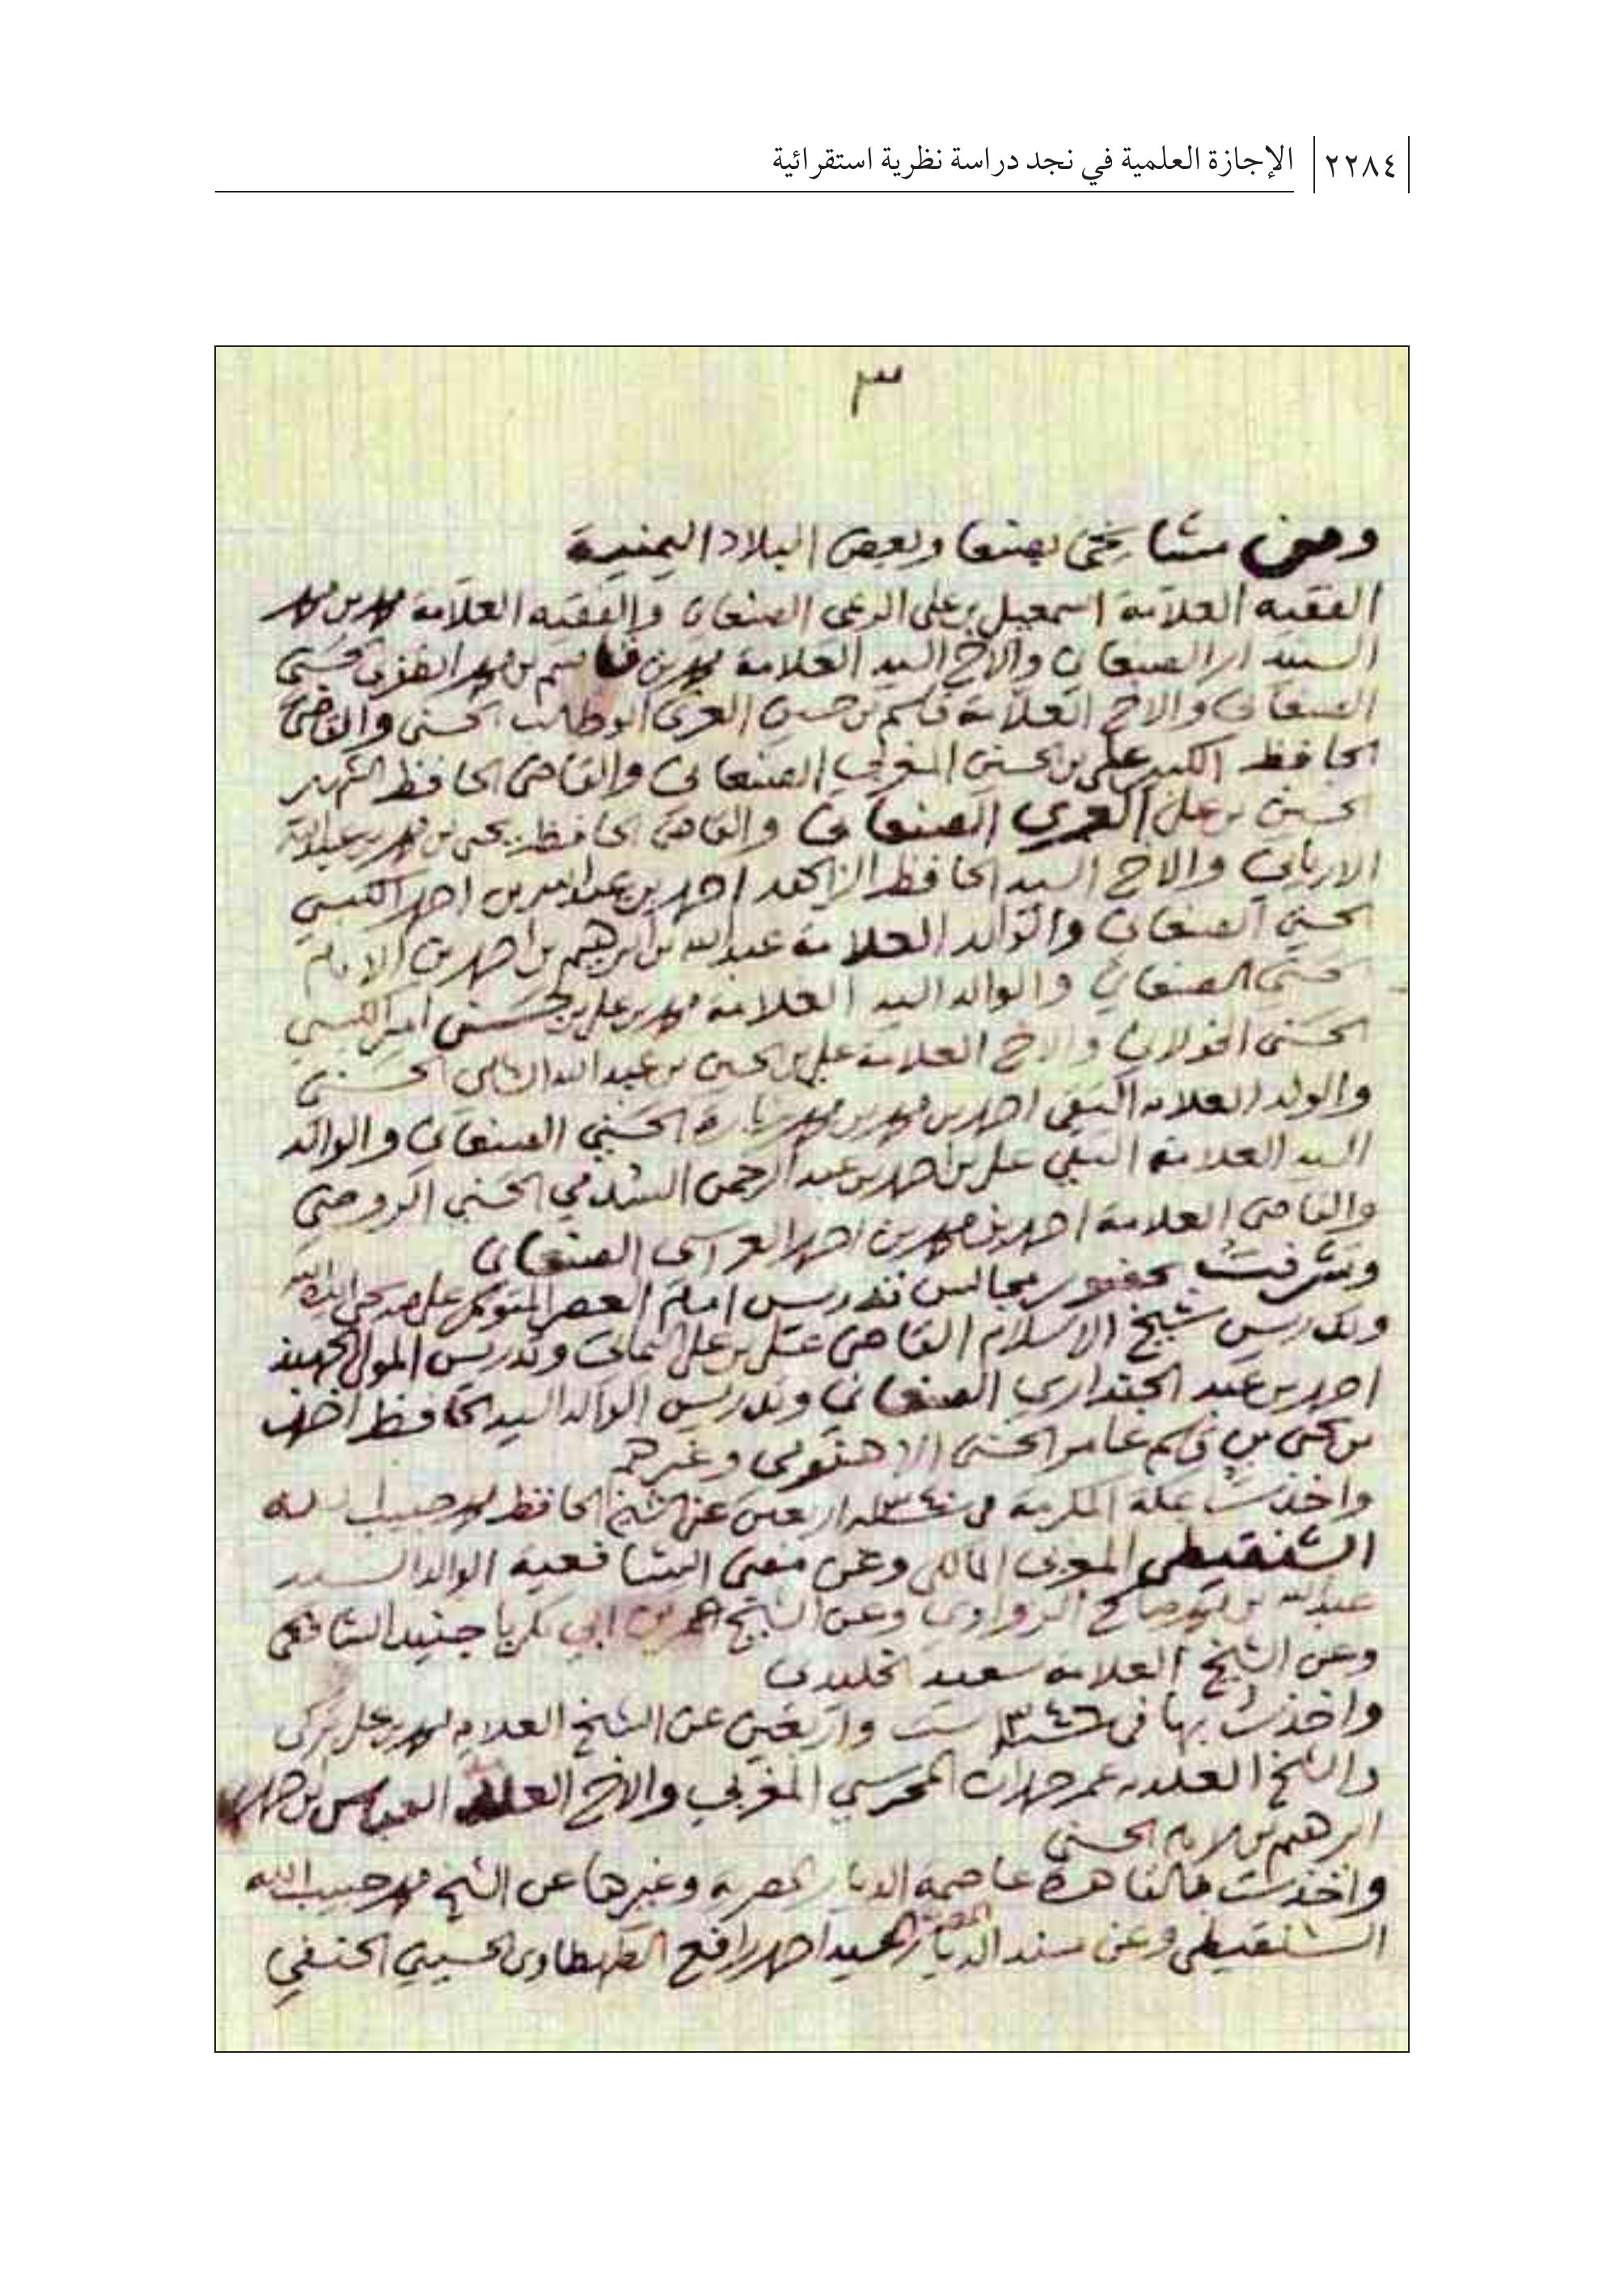 ٢٢٨٤ الإجازة العلمية في نجد دراسة نظرية استقرائية
٣
ومن مشايخي بصنعا وبعض البلاد اليمنية
الفقيه العلامة اسمعيل بن علي الصنعاني والفقيه العلامة محمد بن محمد
الصنعاني والاخ السيد العلامة محمد بن قاسم بن محمد
الصنعاني والاخ العلامة قاسم بن حسين العزي ابو طالب الحسني والقاضي
الحافظ الكبير علي بن الحسين المغربي الصنعاني والقاضي الحافظ الشهير
الحسين بن علي العمري الصنعاني والقاضي الحافظ يحيى بن محمد بن عبدالله
الارياني والاخ السيد الحافظ الزاهد احمد بن عبدالله بن احمد الكبسي
الحسني الصنعاني والوالد العلامة عبدالله بن ابرهيم بن احمد بن الامام
الحسني الصنعاني والوالد السيد العلامة محمد بن علي بن
الحسني الخولاني والاخ العلامة علي بن الحسين بن عبدالله الشامي الحسني
والولد العلامة التقي احمد بن محمد بن محمد زبارة الحسني الصنعاني والوالد
السيد العلامة التقي علي بن احمد بن عبدالرحمن السدمي الحسني الروضي
والقاضي العلامة احمد بن محمد بن احمد الصنعاني
وتشرفت بحضور مجالس تدريس امام العصر المتوكل على الله
وتدريس شيخ الاسلام القاضي علي بن علي اليماني وتدريس المولى
احمد بن عبد الجنداري الصنعاني وتدريس الوالد السيد الحافظ
بن يحيى بن قاسم عامر الحسني الاهنومي وغيرهم
واخذت بمكة المكرمة في سنة اربعين عن الشيخ الحافظ محمد حبيب الله
الشنقيطي المغربي المالكي وعن مفتي الشافعية الوالد السيد
عبدالله بن محمد صالح الزواوي وعن الشيخ ابي بكر بابا جنيد الشافعي
وعن الشيخ العلامة سعيد
واخذت بها في ١٣٤٦ ست واربعين عن الشيخ العلامة محمد علي تركي
والشيخ العلامة عمر حمدان المحرسي المغربي والاخ العلامة العباس بن احمد
ابرهيم بن الامام الحسني
واخذت بالقاهرة عاصمة الديار المصرية وغيرها عن الشيخ محمد حبيب الله
الشنقيطي وعن مسند الديار المصرية السيد احمد رافع الطهطاوي الحسيني الحنفي